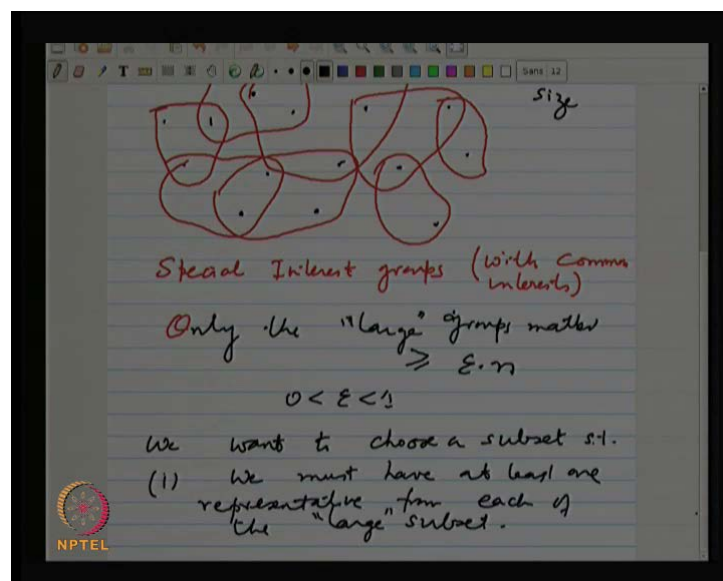 Sans 12
size
Special Interest groups (with common
interests)
Only the "large" groups matter
≥ ε.n
0 < ε < 1
We want to choose a subset s.t.
(1) We must have at least one
representative from each of
the "large" subset.
NPTEL